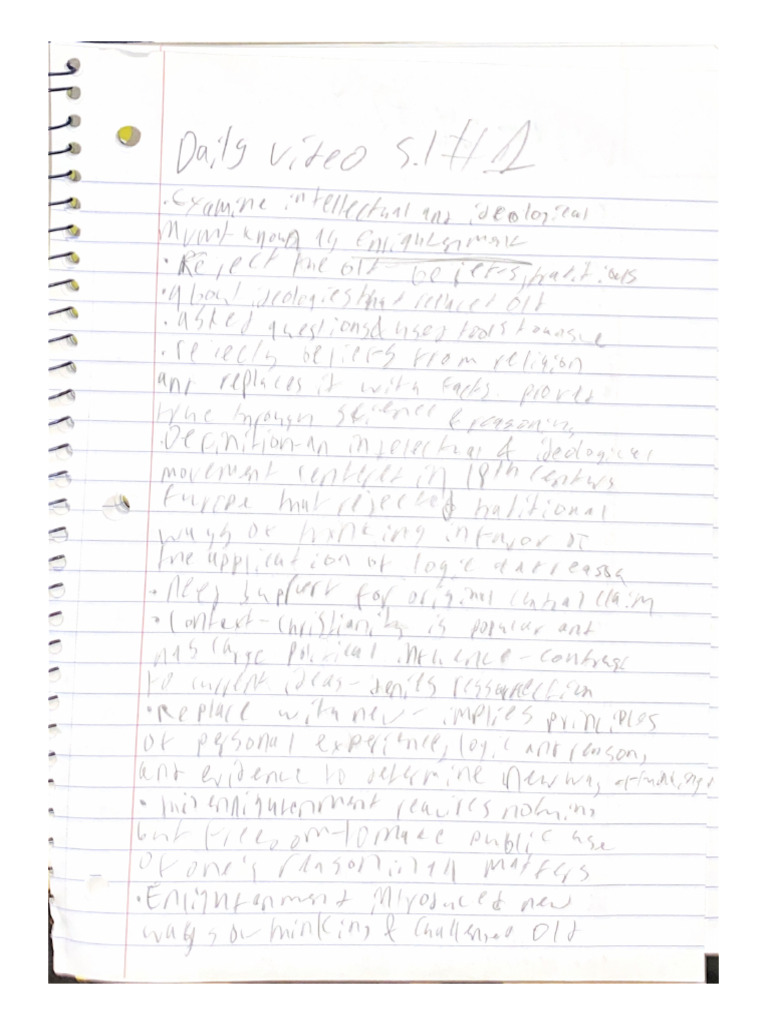 Daily video 5.1 #1
• Examine intellectual and ideological
mvmt known as Enlightenment
• Reject the old beliefs, traditions
• about ideologies that replaced old
• asked questions & used tools to
• rejects beliefs from religion
and replaces it with facts proved
true through science & reasoning
• Definition-an intelectual & ideological
movement centered in 18th century
Europe that rejected traditional
ways of thinking in favor of
the application of logic and reason
• need support for original central claim
• Context-Christianity is popular and
has large political influence-
to current ideas-denies ressurection
• Replace with new-implies principles
of personal experience, logic and reason,
and evidence to determine new way of things
• This enlightenment requires nothing
but freedom-to make public use
of one's reason in all matters
• Enlightenment new
ways of thinking & challenged old